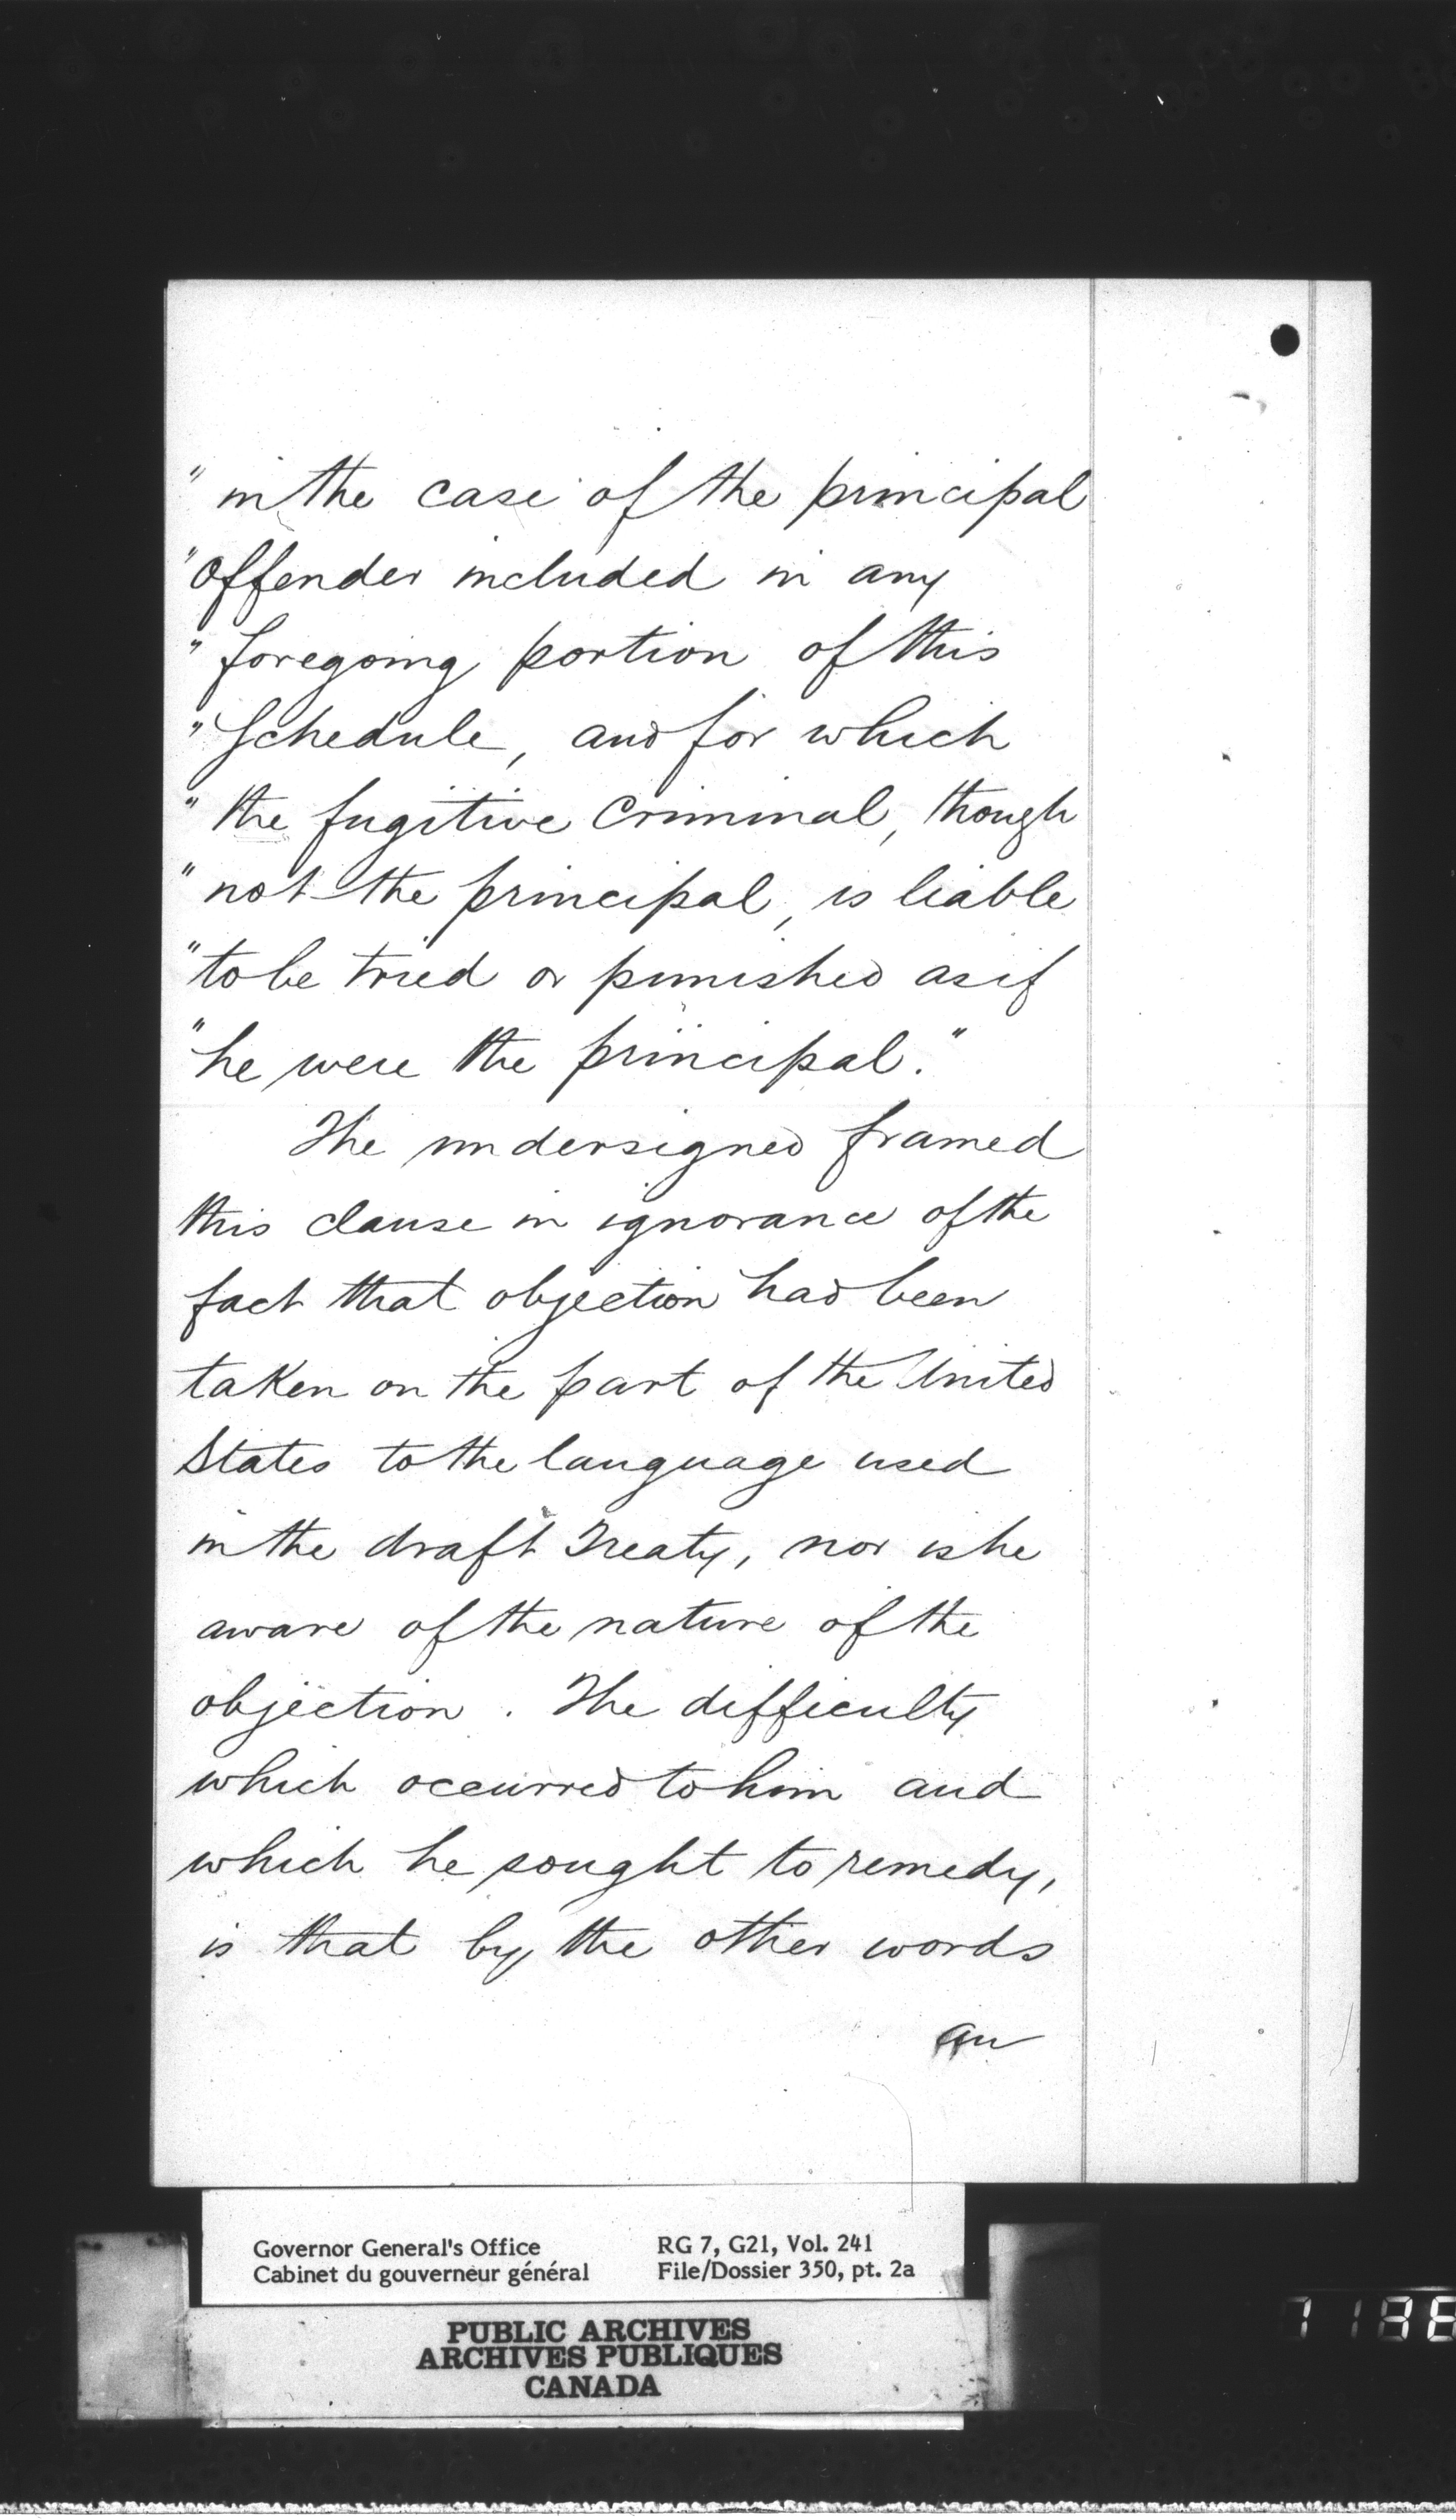 " in the case of the principal
" offender included in any
" foregoing portion of this
" Schedule, and for which
" the fugitive criminal, though
" not the principal, is liable
" to be tried or punished as if
" he were the principal."
The undersigned framed
this clause in ignorance of the
fact that objection had been
taken on the part of the United
States to the language used
in the draft Treaty, nor is he
aware of the nature of the
objection. The difficulty
which occurred to him and
which he sought to remedy,
is that by the other words
an
Governor General's Office
Cabinet du gouverneur général
RG 7, G21, Vol. 241
File/Dossier 350, pt. 2a
PUBLIC ARCHIVES
ARCHIVES PUBLIQUES
CANADA